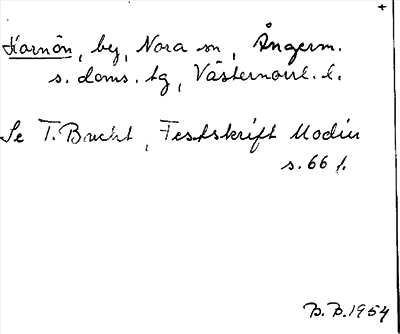 +
Hornön, by, Nora sn, Ångerm.
s. doms. tg, Västernorrl. l.
Se T. Bucht, Festskrift Modin
s. 66 f.
B. B. 1954